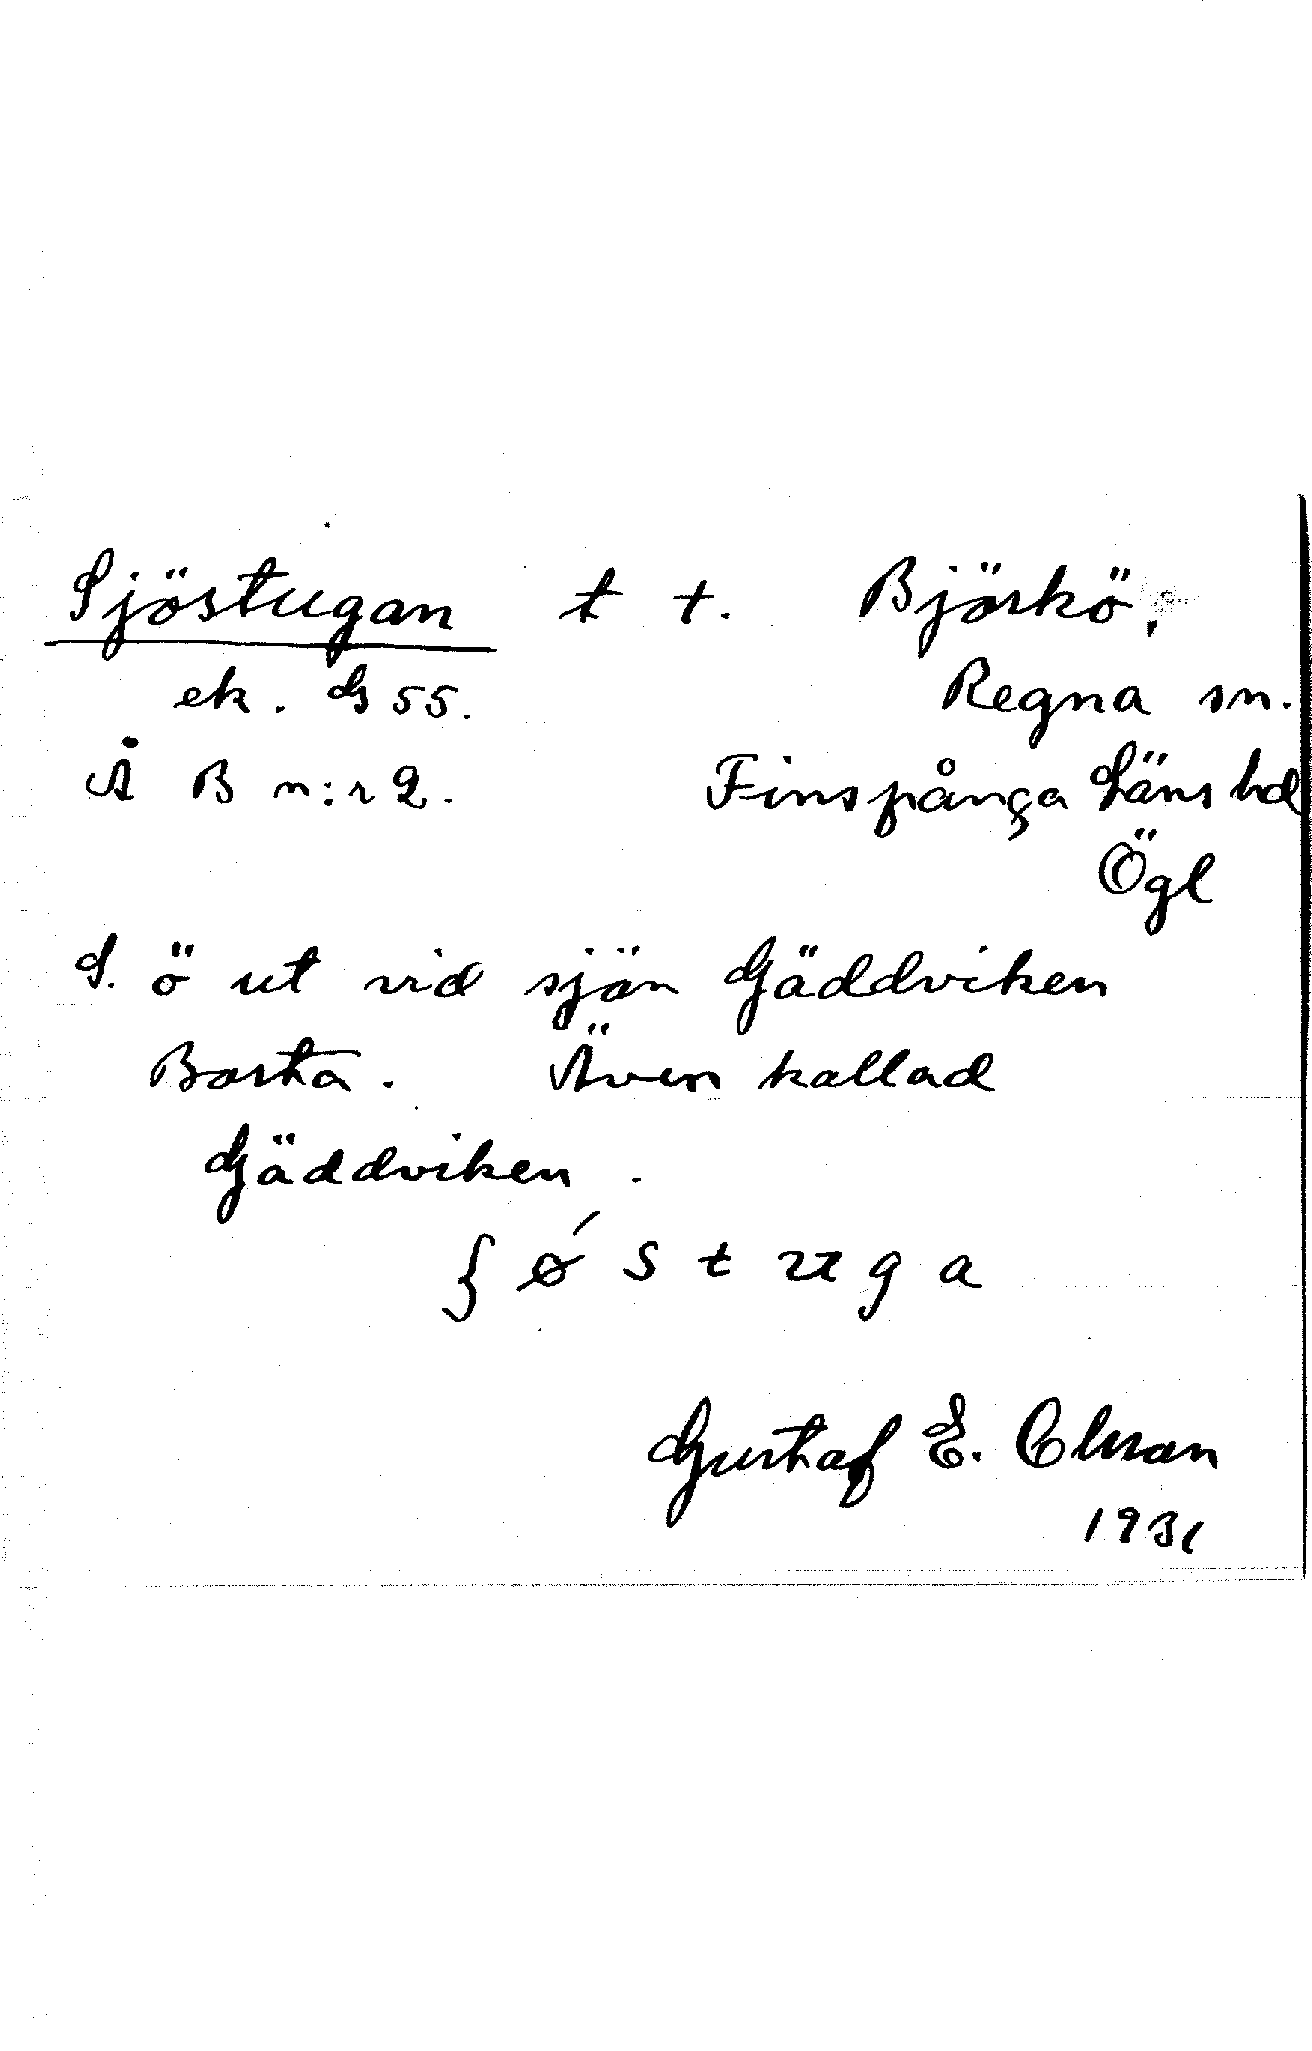 Sjöstugan t t. Björkö,
ek. G 55. Regna sn.
Å B n:r 2. Finspånga Läns hd
Ögl
S. ö ut vid sjön Gäddviken
Borta. Även kallad
Gäddviken.
s t u g a
Gustaf E. Olsson
1931